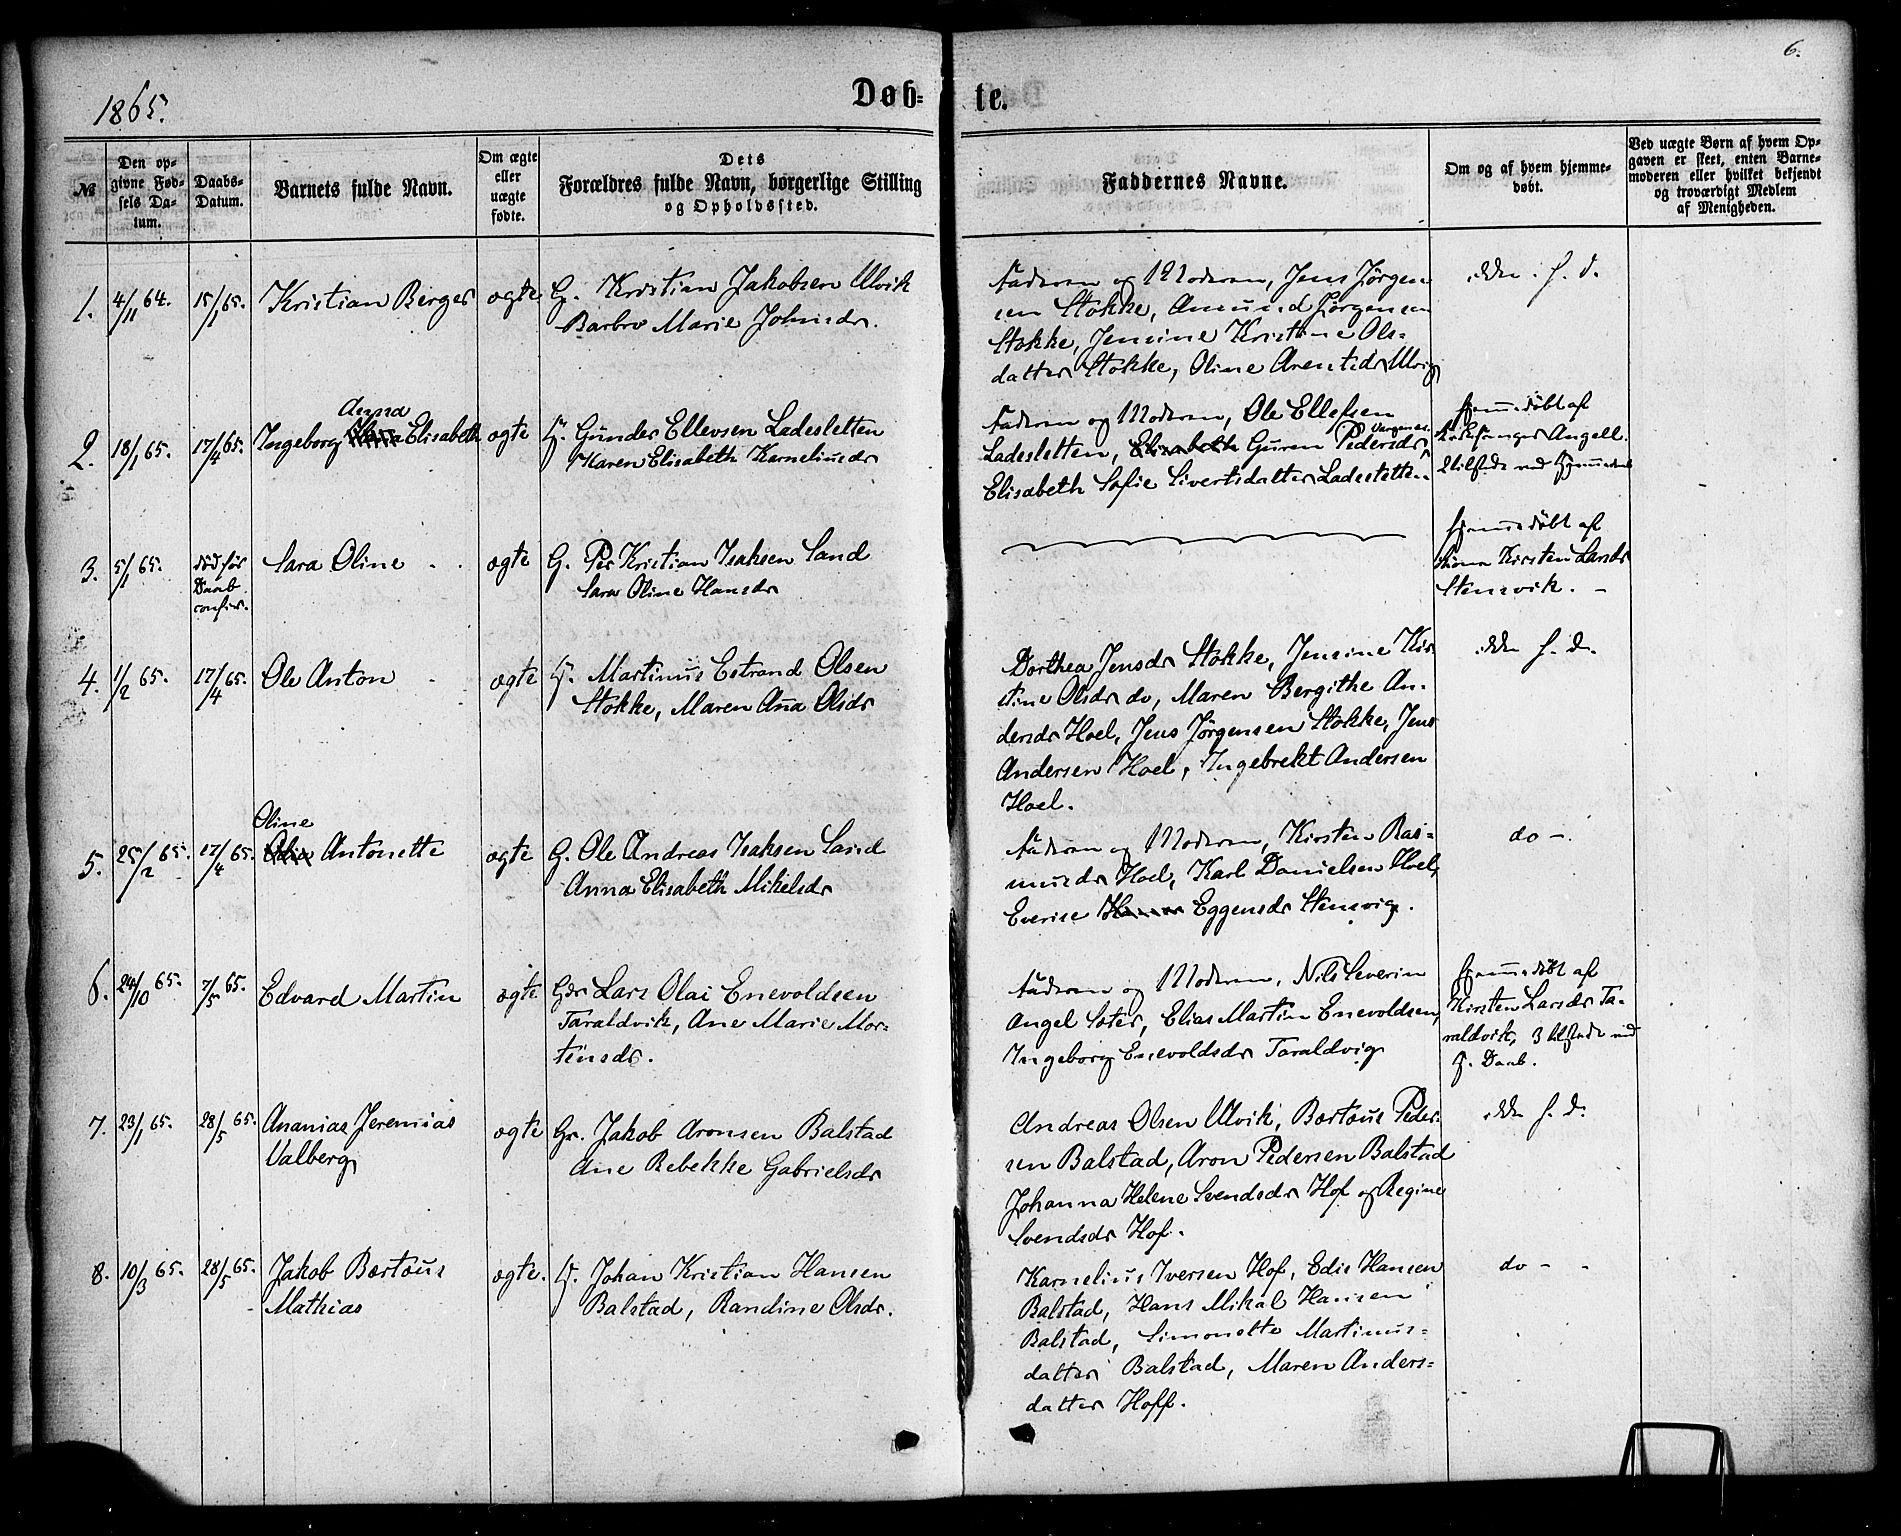 6.
1865.
Døb-
te.
№
Den op-
givne Fød-
sels Da-
tum.
Daabs-
Datum.
Barnets fulde Navn.
Om ægte
eller
uægte
fødte.
Dets
Forældres fulde Navn, borgerlige Stilling
og Opholdssted.
Faddernes Navne.
Om og af hvem hjemme-
døbt.
Ved uægte Børn af hvem Op-
gaven er skeet, enten Barne-
moderen eller hvilket bekjendt
og troværdigt Medlem
af Menigheden.
1.
4/11 64.
15/1 65.
Kristian Berges
ægte
G. Kristian Jakobsen Ulvik
Barbro Marie Johnsdr.
Faderen og Moderen, Jens Jørgen
sen Stokke, Amund Jørgensen
Stokke, Jensine Kristine Ols-
datter Stokke, Oline Arentsdr Ulvig
ikke h. d.
2.
18/1 65.
17/4 65.
Anna
Ingeborg Elisabeth
ægte
Gunder Ellevsen Ladesletten
Karen Elisabeth Karneliusdr
Faderen og Moderen, Ole Ellefsen
Ladesletten, Elisabeth Guren Pedersdr
Elisabeth Sofie Sivertsdatter Ladesletten
hjemmedøbt af
Kirkesanger Angell.
2 tilstede ved Hjemmedaab
3.
5/1 65.
død før
Daab
confir.
Sara Oline
ægte
G. Per Kristian Isaksen Sand
Sara Oline Hansdr
hjemmedøbt af
Kona Kirsten Larsdr
Stensvik.
4.
1/2 65.
17/4 65.
Ole Anton
ægte
Martinus Estrand Olsen
Stokke, Maren Ana Olsdr
Dorthea Jensdr Stokke, Jensine Kri
stine Olsdr do, Maren Bergithe An-
dersdr Hoel, Jens Jørgensen Stokke, Jens
Andersen Hoel, Ingebrekt Andersen
Hoel.
ikke h. d.
5.
25/2 65.
17/4 65.
Oline
Antonette
ægte
G. Ole Andreas Isaksen Sand
Anna Elisabeth Mikelsdr
Faderen og Moderen, Kirsten Ras-
musdr Hoel, Karl Danielsen Hoel,
Everise Eggensdr Stensvig.
do -.
6.
24/10 65.
7/5 65.
Edvard Martin
ægte
Gdr Lars Olai Enevoldsen
Taraldvik, Ane Marie Mor-
tensdr.
Faderen og Moderen, Nils Severin
Angel Sæter, Elias Martin Enevoldsen,
Ingeborg Enevoldsdr Taraldvig
hjemmedøbt af
Kirsten Larsdr Ta-
raldvik, 3 tilstede ved
H. Daab.
7.
23/1 65.
28/5 65.
Ananias Jeremias
Valberg
ægte
Gr. Jakob Aronsen Balstad
Ane Rebekke Gabrielsdr
Andreas Olsen Ulvik, Bærtæus Peder-
sen Balstad, Aron Pedersen Balstad
Johanna Helene Svendsdr Hof og Regine
Svendsdr Hof.
ikke h. d.
8.
10/3 65.
28/5 65.
Jakob Bærtæus
Mathias
ægte.
Johan Kristian Hansen
Balstad, Randine Olsdr.
Karnelius Iversen Hof, Edis Hansen
Balstad, Hans Mikal Hansen
Balstad, Simonette Martinus-
datter Balstad, Maren Anders-
datter Hoff.
do - -